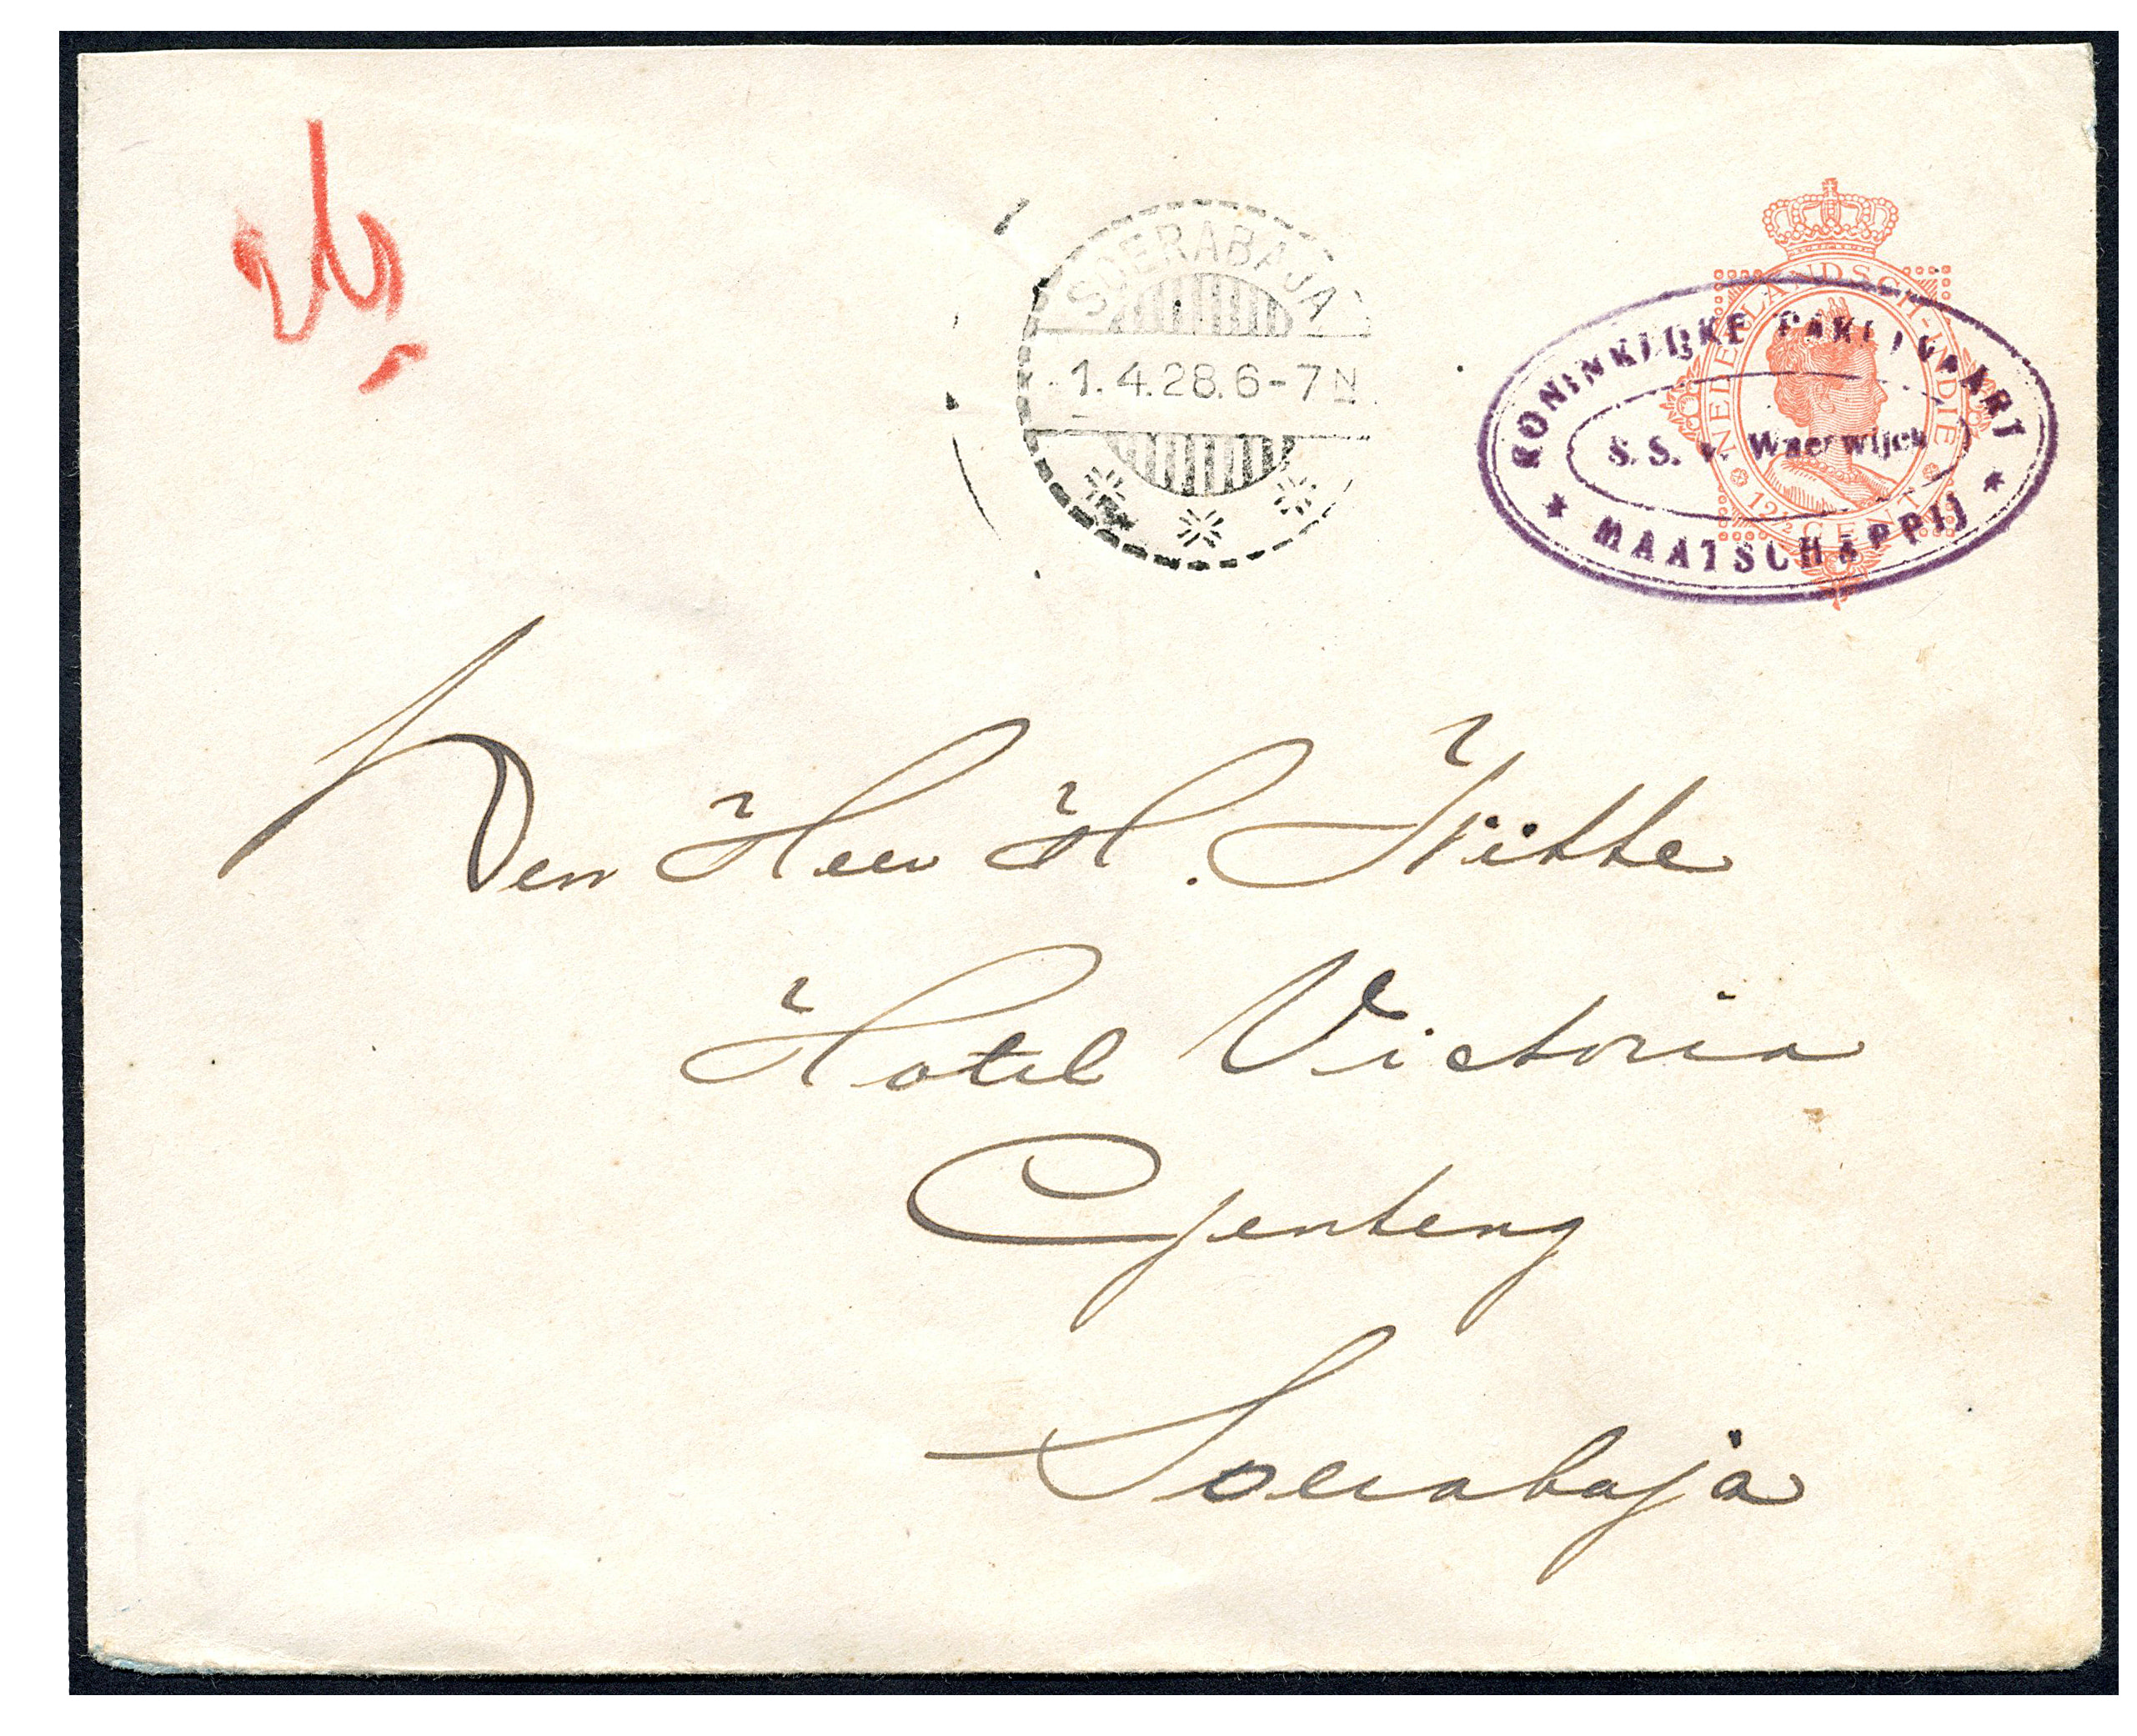 SOERABAJA
1.4.28.6-7N
NEDERLANDSCH-INDIE
12½ CENT
KONINKLIJKE PAKETVAART
S. S. v. Waerwijck
MAATSCHAPPIJ
Den Heer H.
Hotel Victoria
Genteng
Soerabaja